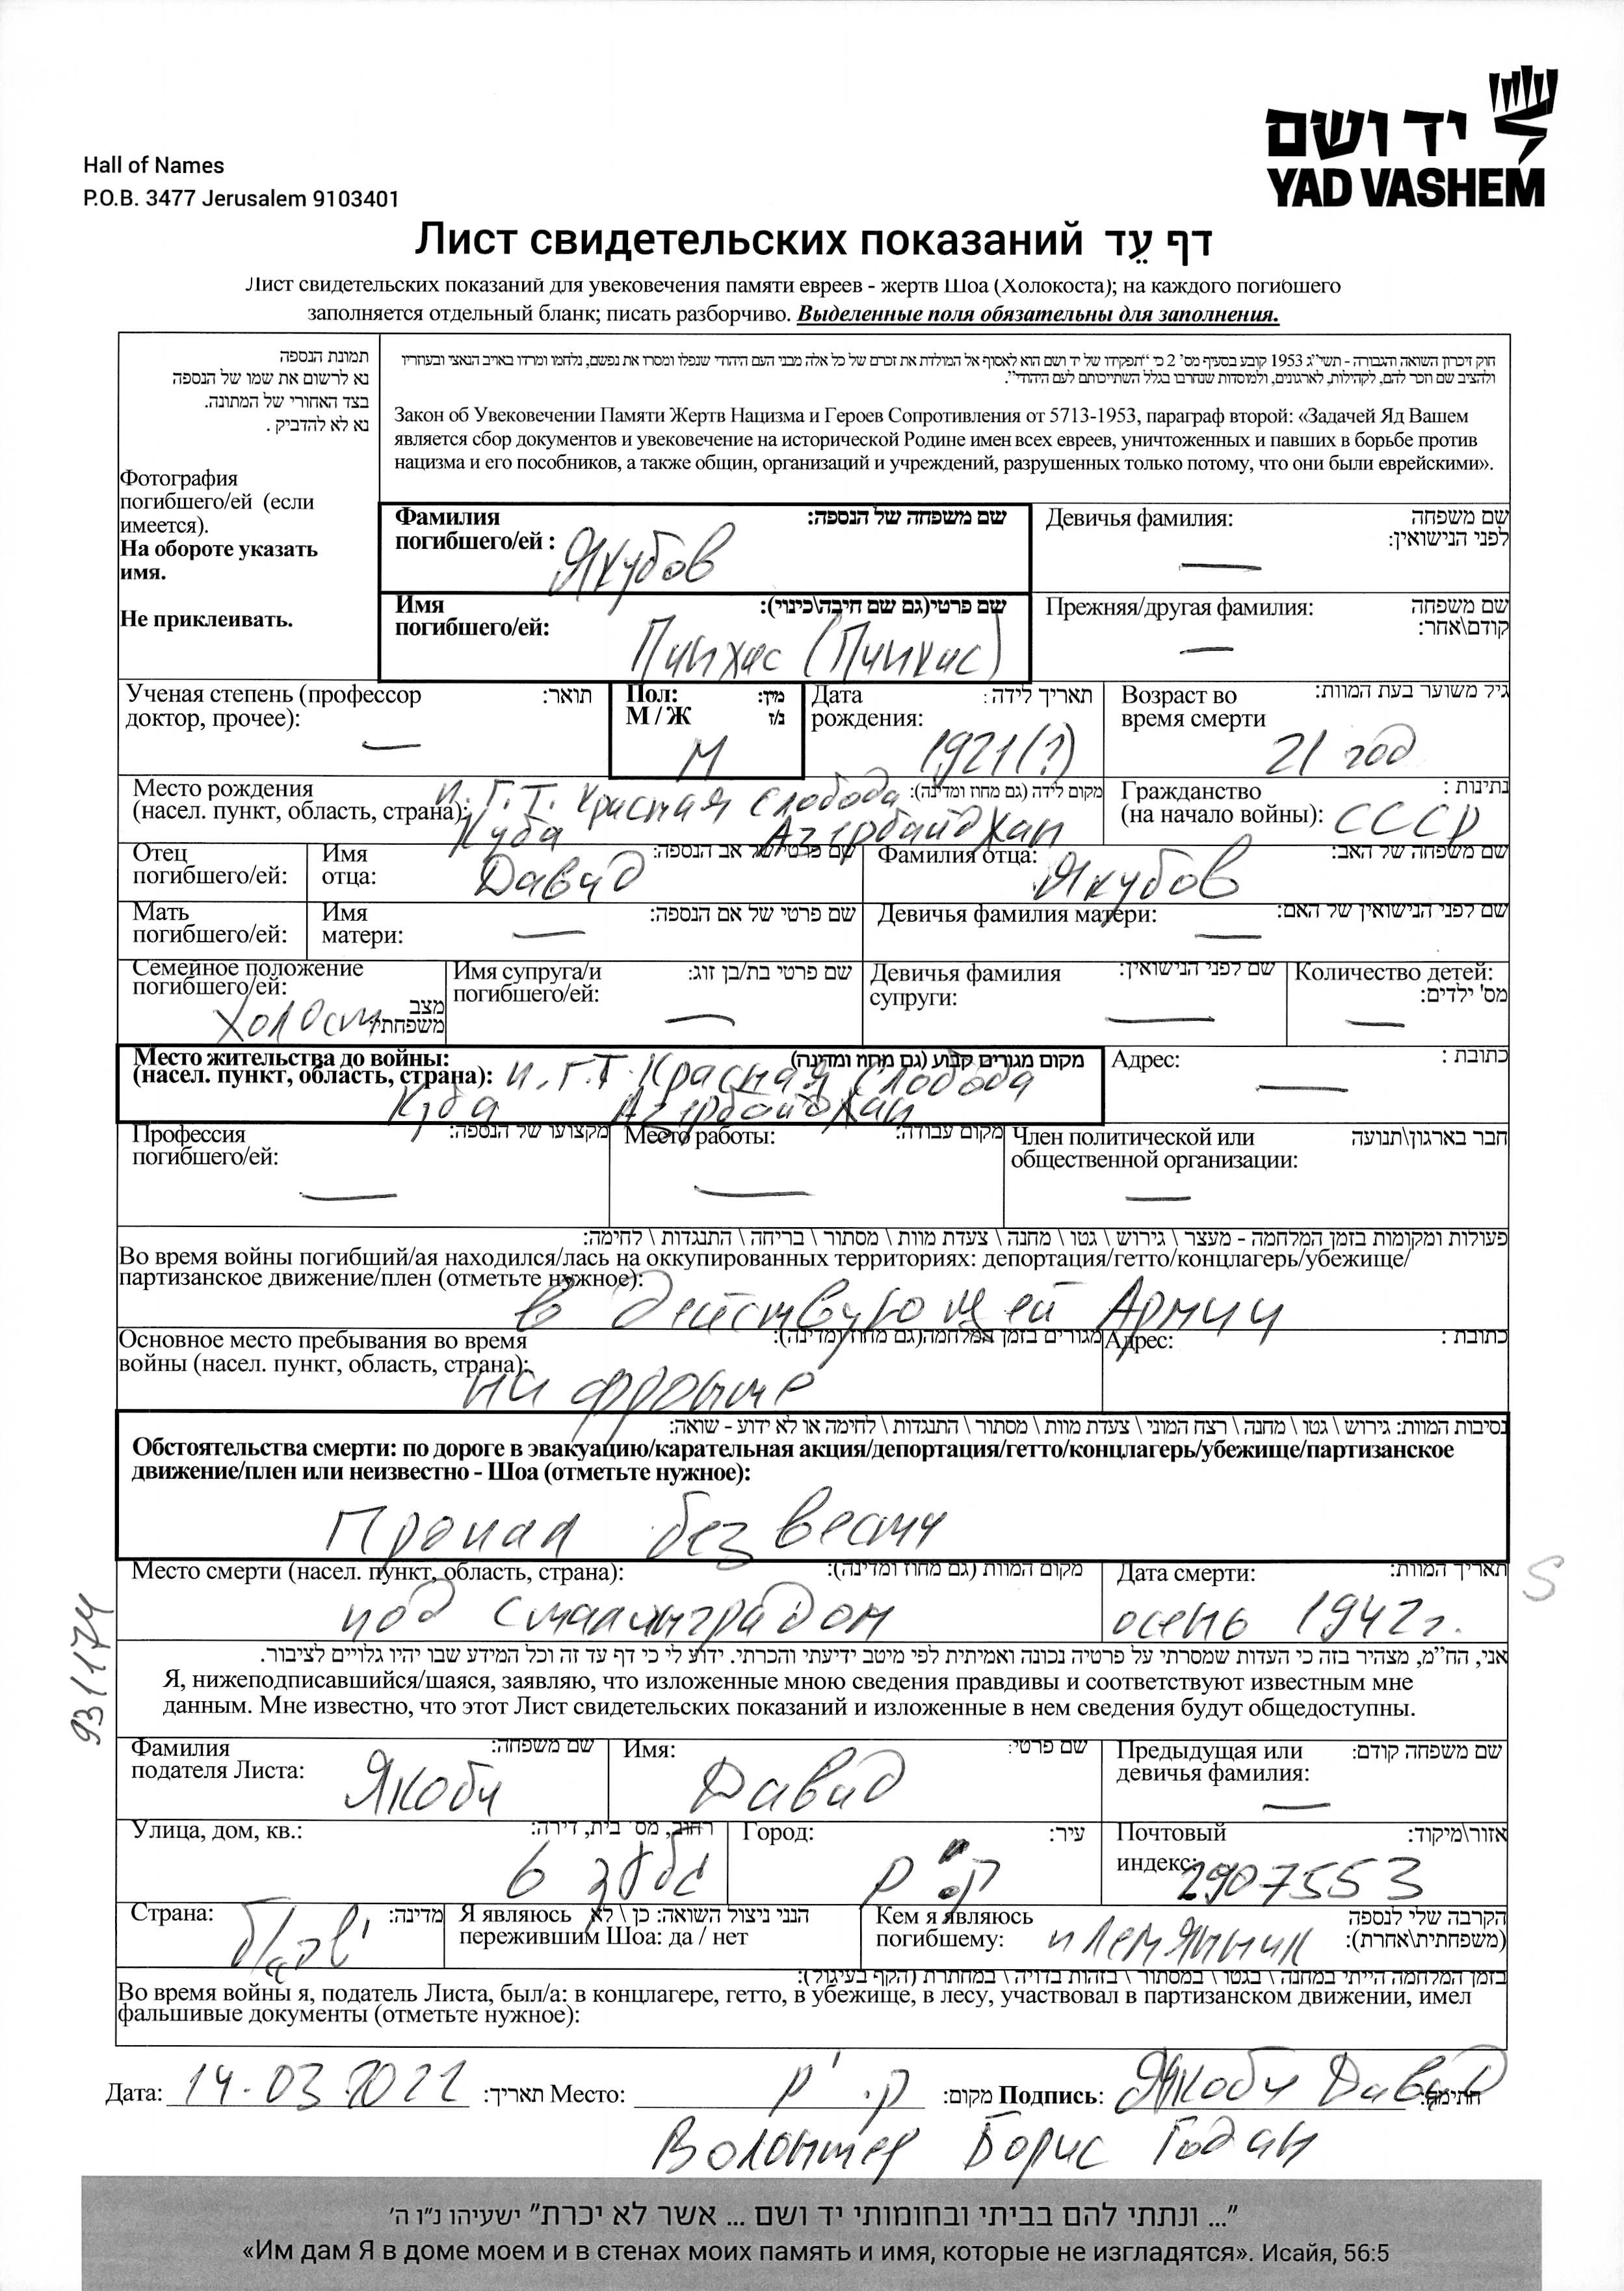 יד ושם
YAD VASHEM
Hall of Names
P.O.B. 3477 Jerusalem 9103401
Лист свидетельских показаний דף עֵד
Лист свидетельских показаний для увековечения памяти евреев - жертв Шоа (Холокоста); на каждого погибшего
заполняется отдельный бланк; писать разборчиво. Выделенные поля обязательны для заполнения.
תמונת הנספה
נא לרשום את שמו של הנספה
בצד האחורי של המתונה.
נא לא להדביק .
Фотография
погибшего/ей (если
имеется).
На обороте указать
имя.
Не приклеивать.
חוק זיכרון השואה והגבורה - תשי"ג 1953 קובע בסעיף מס' 2 כי "תפקידו של יד ושם הוא לאסוף אל המולדת את זכרם של כל אלה מבני העם היהודי שנפלו ומסרו את נפשם, נלחמו ומרדו באויב הנאצי ובעוזריו
ולהציב שם וזכר להם, לקהילות, לארגונים, ולמוסדות שנחרבו בגלל השתייכותם לעם היהודי".
Закон об Увековечении Памяти Жертв Нацизма и Героев Сопротивления от 5713-1953, параграф второй: «Задачей Яд Вашем
является сбор документов и увековечение на исторической Родине имен всех евреев, уничтоженных и павших в борьбе против
нацизма и его пособников, а также общин, организаций и учреждений, разрушенных только потому, что они были еврейскими».
Фамилия погибшего/ей : שם משפחה של הנספה:
Якубов
Девичья фамилия: שם משפחה לפני הנישואין:
—
Имя погибшего/ей: שם פרטי(גם שם חיבה\כינוי):
Пинхас (Пинхас)
Прежняя/другая фамилия: שם משפחה קודם\אחר:
—
Ученая степень (профессор доктор, прочее): תואר:
—
Пол: М / Ж מין: ז/נ
М
Дата рождения: תאריך לידה :
1921(?)
Возраст во время смерти גיל משוער בעת המוות:
21 год
Место рождения (насел. пункт, область, страна): מקום לידה (גם מחוז ומדינה):
п.Г.Т. Красная Слобода
Куба Азербайджан
Гражданство (на начало войны): נתינות :
СССР
Отец погибшего/ей:
Имя отца: שם פרטי של אב הנספה:
Давид
Фамилия отца: שם משפחה של האב:
Якубов
Мать погибшего/ей:
Имя матери: שם פרטי של אם הנספה:
—
Девичья фамилия матери: שם לפני הנישואין של האם:
—
Семейное положение погибшего/ей: מצב משפחתי:
Холост
Имя супруга/и погибшего/ей: שם פרטי בת/בן זוג:
—
Девичья фамилия супруги: שם לפני הנישואין:
—
Количество детей: מס' ילדים:
—
Место жительства до войны: (насел. пункт, область, страна): מקום מגורים קבוע (גם מחוז ומדינה)
п.Г.Т. Красная Слобода
Куба Азербайджан
Адрес: כתובת :
—
Профессия погибшего/ей: מקצועו של הנספה:
—
Место работы: מקום עבודה:
—
Член политической или общественной организации: חבר בארגון\תנועה
—
פעולות ומקומות בזמן המלחמה - מעצר \ גירוש \ גטו \ מחנה \ צעדת מוות \ מסתור \ בריחה \ התנגדות \ לחימה:
Во время войны погибший/ая находился/лась на оккупированных территориях: депортация/гетто/концлагерь/убежище/
партизанское движение/плен (отметьте нужное):
в действующей Армии
Основное место пребывания во время войны (насел. пункт, область, страна): מגורים בזמן המלחמה(גם מחוז ומדינה):
на фронте
Адрес: כתובת :
נסיבות המוות: גירוש \ גטו \ מחנה \ רצח המוני \ צעדת מוות \ מסתור \ התנגדות \ לחימה או לא ידוע - שואה:
Обстоятельства смерти: по дороге в эвакуацию/карательная акция/депортация/гетто/концлагерь/убежище/партизанское
движение/плен или неизвестно - Шоа (отметьте нужное):
Пропал без вести
Место смерти (насел. пункт, область, страна): מקום המוות (גם מחוז ומדינה):
под Сталинградом
Дата смерти: תאריך המוות:
осень 1942г.
S
931174
אני, הח"מ, מצהיר בזה כי העדות שמסרתי על פרטיה נכונה ואמיתית לפי מיטב ידיעתי והכרתי. ידוע לי כי דף עד זה וכל המידע שבו יהיו גלויים לציבור.
Я, нижеподписавшийся/шаяся, заявляю, что изложенные мною сведения правдивы и соответствуют известным мне
данным. Мне известно, что этот Лист свидетельских показаний и изложенные в нем сведения будут общедоступны.
Фамилия подателя Листа: שם משפחה:
Якоби
Имя: שם פרטי:
Давид
Предыдущая или девичья фамилия: שם משפחה קודם:
—
Улица, дом, кв.: רחוב, מס' בית, דירה:
6
Город: עיר:
ק"י
Почтовый индекс: אזור\מיקוד:
2907553
Страна: מדינה:
Я являюсь пережившим Шоа: да / нет הנני ניצול השואה: כן \ לא
Кем я являюсь погибшему: הקרבה שלי לנספה (משפחתית\אחרת):
племянник
בזמן המלחמה הייתי במחנה \ בגטו \ במסתור \ בזהות בדויה \ במחתרת (הקף בעיגול):
Во время войны я, податель Листа, был/а: в концлагере, гетто, в убежище, в лесу, участвовал в партизанском движении, имел
фальшивые документы (отметьте нужное):
Дата: 14.03.2022 תאריך: Место: מקום: Подпись: Якоби Давид חתימה:
Волонтер Борис Годин
"... ונתתי להם בביתי ובחומותי יד ושם ... אשר לא יכרת" ישעיהו נ"ו ה'
«Им дам Я в доме моем и в стенах моих память и имя, которые не изгладятся». Исайя, 56:5